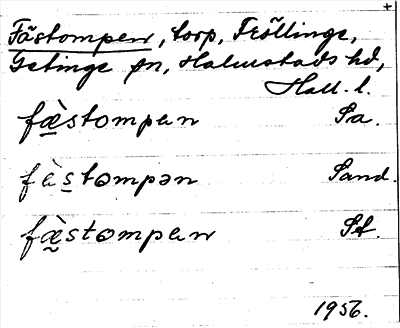 +
Fästompen, torp, Tröllinge,
Getinge sn, Halmstads hd,
Hall. l.
fæ̀stompən Sa.
fès̲tompən Sand.
fæ̀stompən St.
1956.